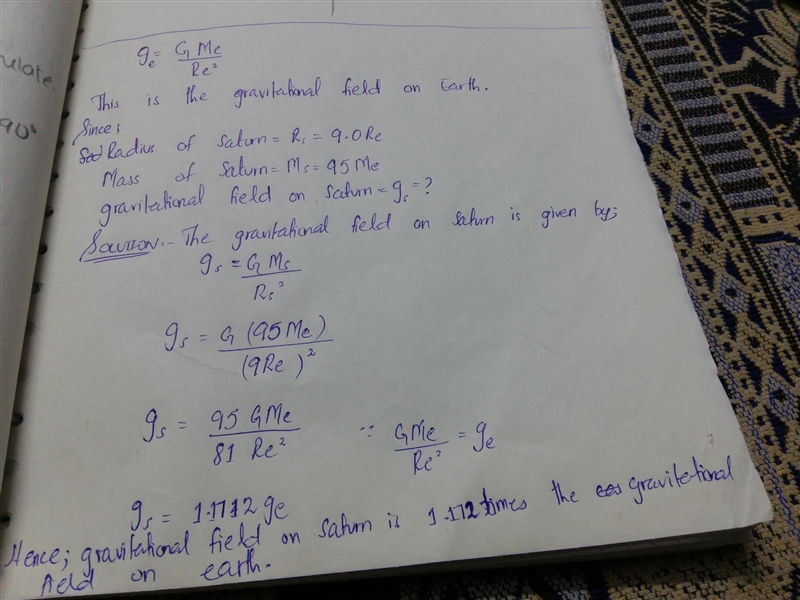 ulate.
90°
gₑ = G Me / Re²
This is the gravitational field on Earth.
Since;
Radius of saturn = Rs = 9.0 Re
Mass of saturn = Ms = 95 Me
gravitational field on saturn = gs = ?
SOLUTION:- The gravitational field on saturn is given by;
gs = G Ms / Rs²
gs = G (95 Me) / (9Re)²
gs = 95 GMe / 81 Re² ∵ GMe / Re² = ge
gs = 1.1712 ge
Hence; gravitational field on saturn is 1.172 times the gravitational
field on earth.